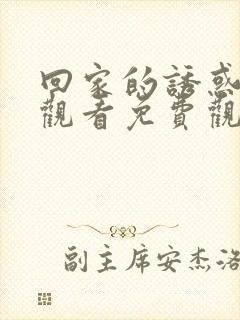 回家的誘惑
觀看免費觀
副主席安杰洛